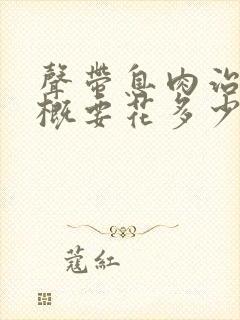 聲帶息肉治
概要花多少
蔻紅